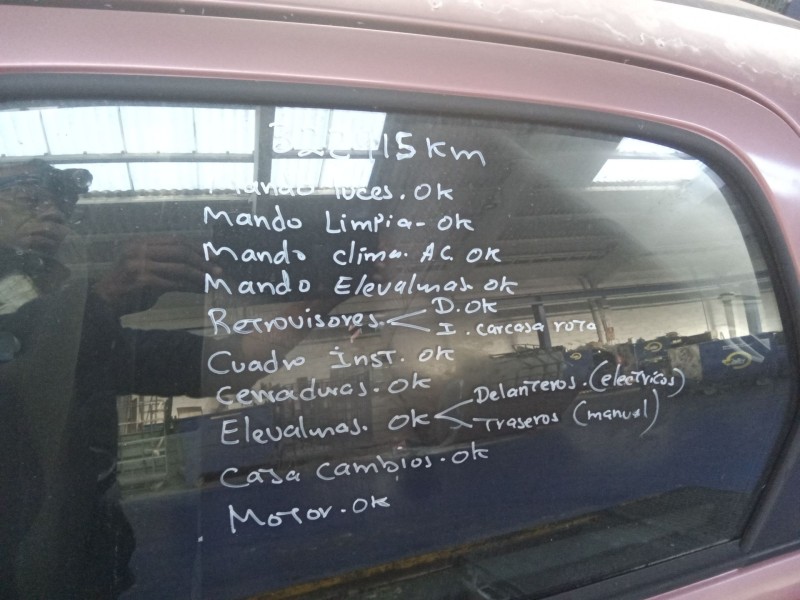 115 Km
Mando luces. OK
Mando Limpia- OK
Mando clima. AC. OK
Mando Elevalunas. OK
Retrovisores. D. OK
I. carcasa rota
Cuadro Inst. OK
Cerraduras. OK
Elevalunas. OK Delanteros. (electricos)
Traseros (manual)
Caja Cambios. OK
Motor. OK